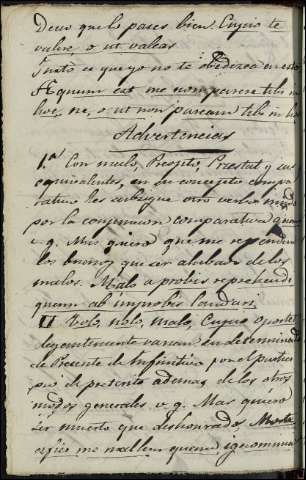 Deseo que lo pases bien. Cupio te
valere, o ut valeas
Justo es que yo no te obedezca en esto
Æquum est me non parere tibi in
hoc, ne, o ut non paream tibi in hoc
Advertencias
1.ª Con malo, Præstat y sus
equivalentes, en su concepto compa
rativo les subsigue otro verbo
por la conjuncion comparativa quam
v.g. Mas quiero que me reprendan
los buenos que ser alabado de los
malos. Malo a probis reprehendi
quam ab improbis laudari.
II Volo, nolo, malo, Cupio oportet
elegantemente varian su determinado
de Presente de Infinitivo por el partici
pio de preterito ademas de los otros
modos generales v.g. Mas quiero
ser muerto que deshonrado.
me malleem quam